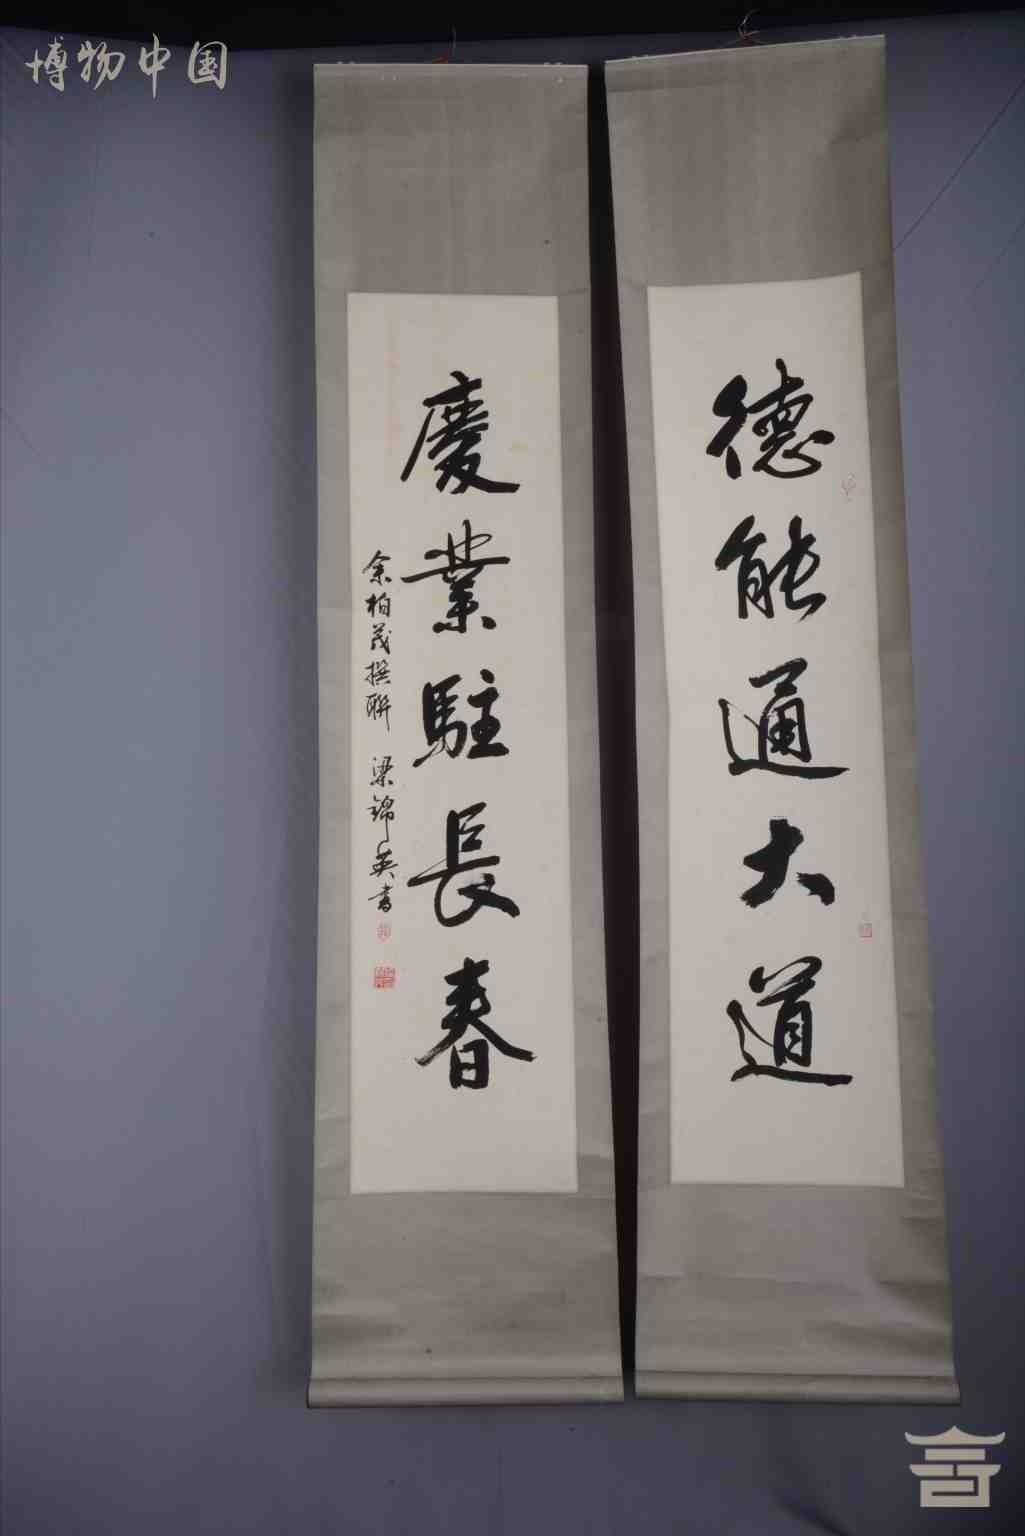 博物中国
德能通大道
慶業駐長春
余柏茂撰聯 梁錦英書